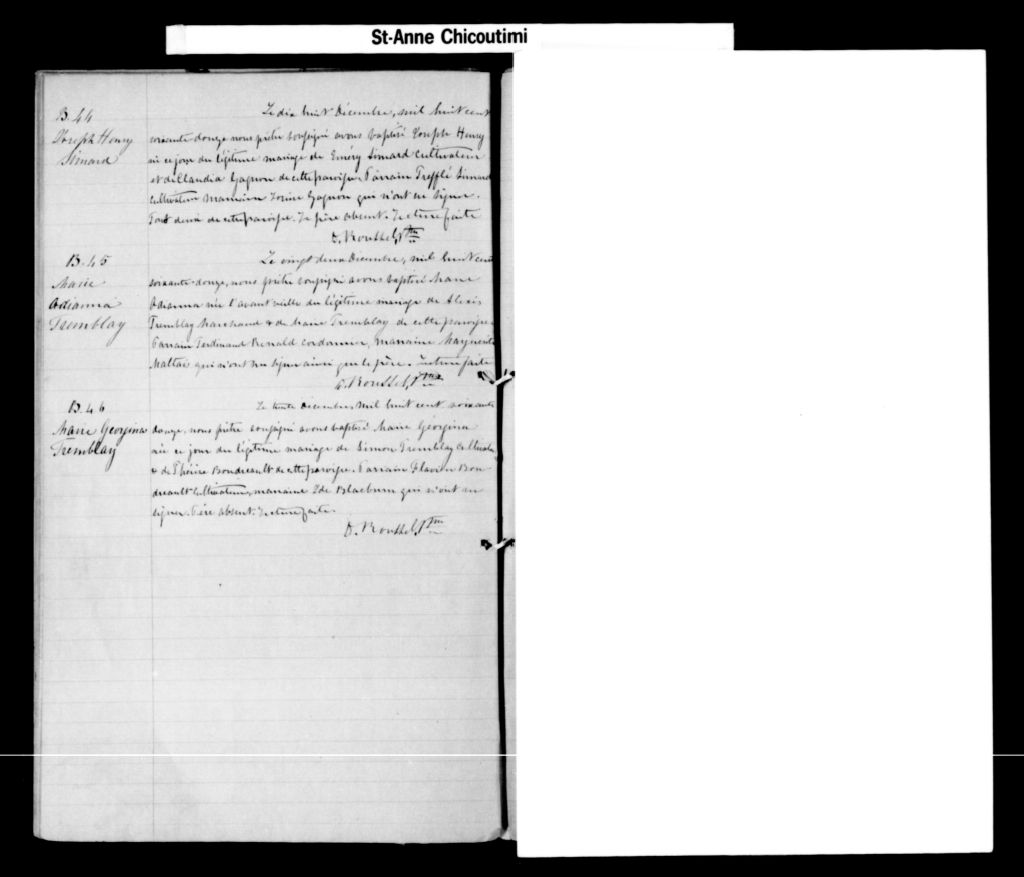 St-Anne Chicoutimi
B. 44
Joseph Henry
Simard
Le dix huit Décembre, mil huit cent
soixante douze nous prêtre soussigné avons baptisé Joseph Henry
né ce jour du légitime mariage de Eméry Simard Cultivateur
et de Claudia Gagnon de cette paroisse. Parrain Trefflé Simard
Cultivateur Marraine Gagnon qui n'ont su signer.
Tous deux de cette paroisse. Le père absent. Lecture faite
D. Roussel, Ptre
B. 45
Marie
Odianna
Tremblay
Le vingt deux Décembre, mil huit cent
soixante douze, nous prêtre soussigné avons baptisé Marie
Odianna née l'avant veille du légitime mariage de Alexis
Tremblay Marchand & de Marie Tremblay de cette paroisse.
Parrain Ferdinand Renald cordonnier, marraine Marguerite
Maltais qui n'ont su signer ainsi que le père. Lecture faite
D. Roussel, Ptre
B. 46
Marie Georgina
Tremblay
Le trente Décembre, mil huit cent soixante
douze, nous prêtre soussigné avons baptisé Marie Géorgina
née ce jour du légitime mariage de Simon Tremblay Cultivateur
& de Thérèse Boudreault de cette paroisse. Parrain Flavien Bou-
dreault Cultivateur, marraine Ide Blackburn qui n'ont su
signer. Père absent. Lecture faite.
D. Roussel, Ptre